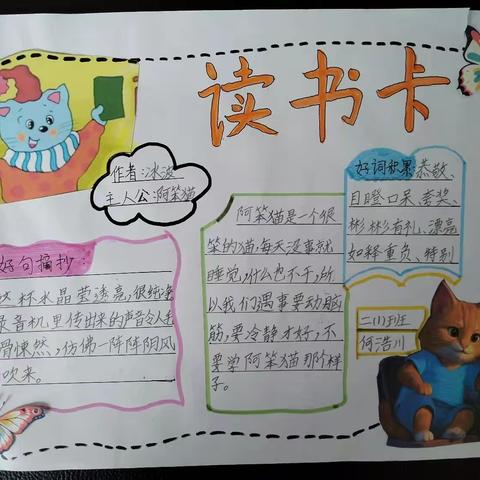 读书卡
作者:冰波
主人公:阿笨猫
好词积累:恭敬、
目瞪口呆、套奖、
彬彬有礼、漂亮
如释重负、特别
阿笨猫是一个很
笨的猫,每天没事就
睡觉,什么也不干,所
以我们遇事要动脑
筋,要冷静才好,不
要学阿笨猫那个样
子。
好句摘抄:
杯水晶莹透亮,很纯净
录音机里传出来的声音令人毛
骨悚然,仿佛一阵阵阴风
吹来。
二(1)班
何浩川